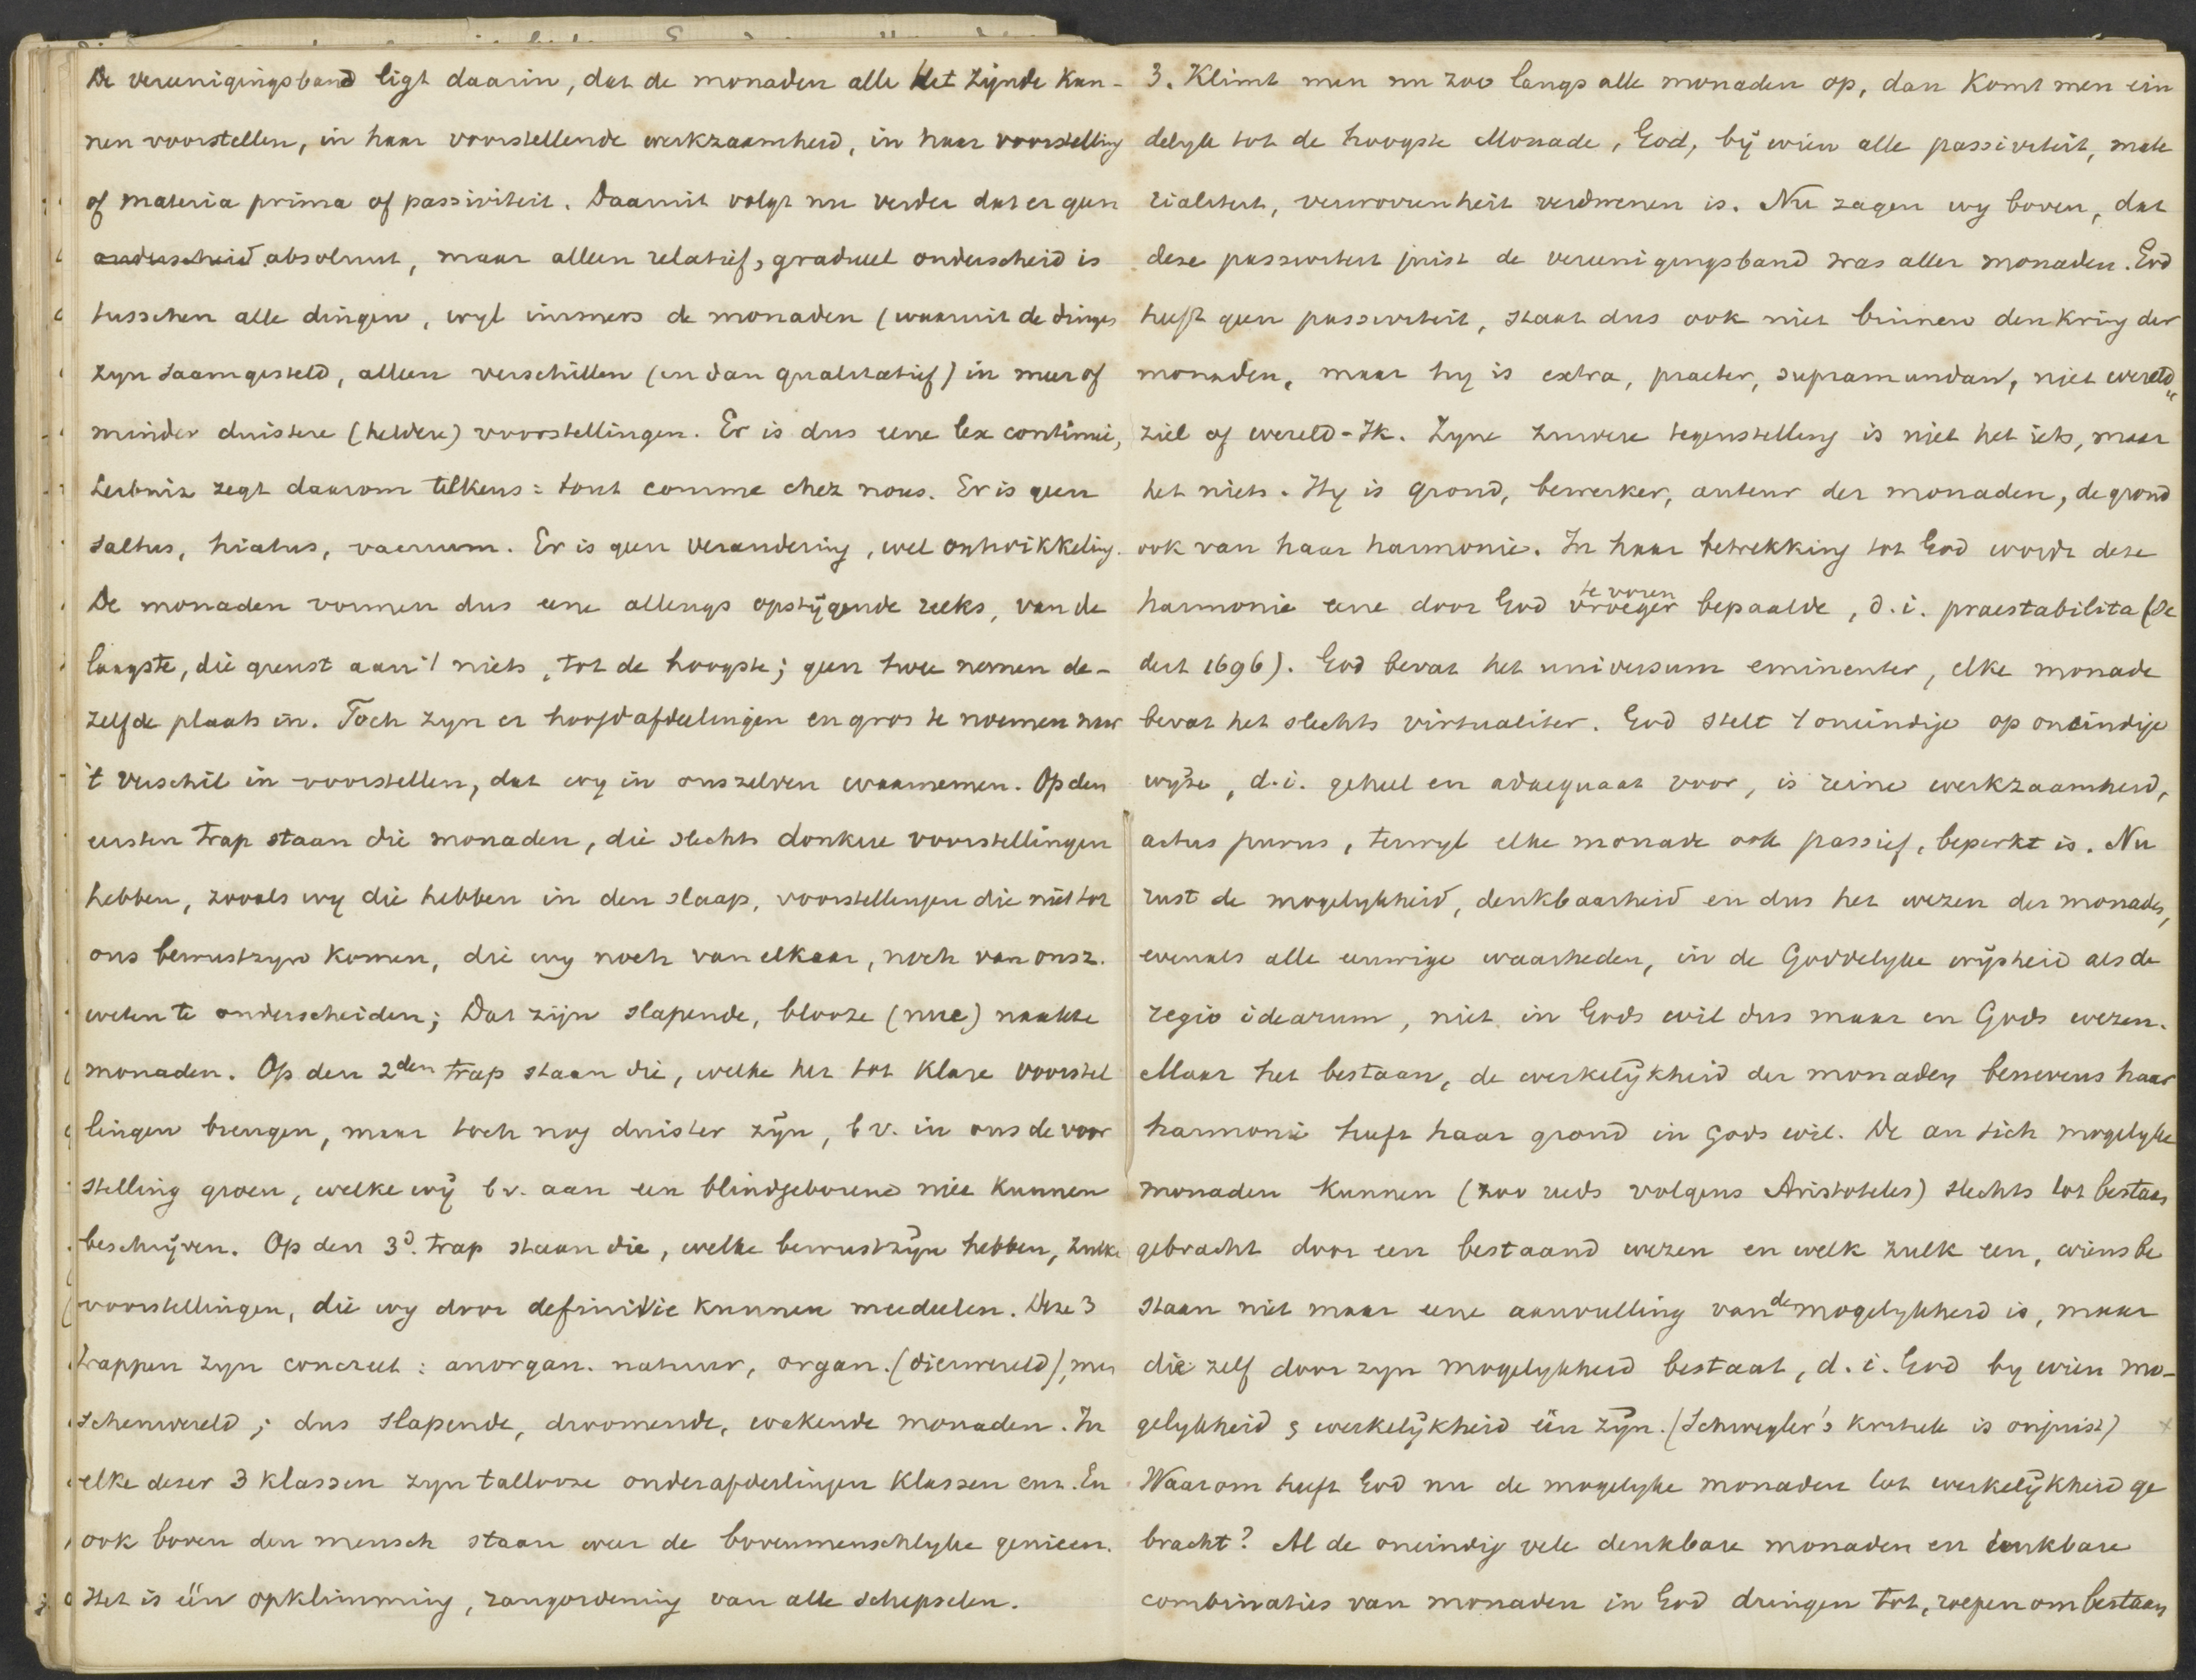 De vereenigingsband ligt daarin, dat de monaden alle het zijnde kun-
nen voorstellen, in haar voorstellende werkzaamheid, in haar voorstelling
of materia prima of passiviteit. Daaruit volgt nu verder dat er geen
onderscheid absoluut, maar alleen relatief, gradueel onderscheid is
tusschen alle dingen, wyl immers de monaden (waaruit de dingen
zyn saamgesteld, alleen verschillen (en dan qualitatief) in meer of
minder duistere (heldere) voorstellingen. Er is dus eene lex continui,
Leibniz zegt daarom telkens: tout comme chez nous. Er is geen
saltus, hiatus, vacuum. Er is geen verandering, wel ontwikkeling.
De monaden vormen dus eene allengs opstijgende reeks, van de
laagste, die grenst aan 't niets, tot de hoogste; geen twee nemen de-
zelfde plaats in. Toch zyn er hoofdafdeelingen en gros te noemen naar
't verschil in voorstellen, dat wy in onszelven waarnemen. Op den
eersten trap staan die monaden, die slechts donkere voorstellingen
hebben, zooals wy die hebben in den slaap, voorstellingen die niet tot
ons bewustzyn komen, die wy noch van elkaar, noch van onsz.
weten te onderscheiden; Dat zijn slapende, blooze (nue) naakte
monaden. Op den 2den trap staan die, welke het tot klare voorstel
lingen brengen, maar toch nog duister zijn, b v. in ons de voor
stelling groen, welke wij b v. aan een blindgeborene niet kunnen
beschrijven. Op den 3d. trap staan die, welke bewustzijn hebben, zulke
voorstellingen, die wy door definitie kunnen meedeelen. Deze 3
trappen zyn concreet: anorgan. natuur, organ. (dierwereld), men
schenwereld; dus slapende, droomende, wakende monaden. In
elke dezer 3 klassen zyn tallooze onderafdeelingen klassen enz. En
ook boven den mensch staan weer de bovenmenschlyke genieen.
Het is één opklimming, rangordening van alle schepselen.
3. Klimt men nu zoo langs alle monaden op, dan komt men ein
delyk tot de hoogste Monade, God, bij wien alle passiviteit, mate
rialiteit, verworrenheit verdwenen is. Nu zagen wy boven, dat
deze passiviteit juist de vereenigingsband was aller monaden. God
heeft geen passiviteit, staat dus ook niet binnen den kring der
monaden, maar hy is extra, praeter, supramundan, niet wereld„
ziel of wereld-Ik. Zyne zuivere tegenstelling is niet het iets, maar
het niets. Hy is grond, bewerker, auteur der monaden, de grond
ook van haar harmonie. In haar betrekking tot God wordt deze
harmonie eene door God te voren vroeger bepaalde, d. i. praestabilita (se
dert 1696). God bevat het universum eminenter, elke monade
bevat het slechts virtualiter. God stelt 't oneindige op oneindige
wyze, d. i. geheel en adaequaat voor, is reine werkzaamheid,
actus purus, terwyl elke monade ook passief, beperkt is. Nu
rust de mogelykheid, denkbaarheid en dus het wezen der monades,
evenals alle eeuwige waarheden, in de Goddelyke wijsheid als de
regio idearum, niet in Gods wil dus maar en Gods wezen.
Maar het bestaan, de werkelijkheid der monaden benevens haar
harmonie heeft haar grond in Gods wil. De an sich mogelyke
monaden kunnen (zoo reeds volgens Aristoteles) slechts tot bestaan
gebracht door een bestaand wezen en welk zulk een, wiens be
staan niet maar eene aanvulling van de mogelykheid is, maar
die zelf door zyn mogelykheid bestaat, d. i. God by wien mo-
gelykheid & werkelijkheid één zijn. (Schwegler's kritiek is onjuist)
Waarom heeft God nu de mogelyke monaden tot werkelijkheid ge
bracht? Al de oneindig vele denkbare monaden en denkbare
combinaties van monaden in God dringen tot, roepen om bestaan